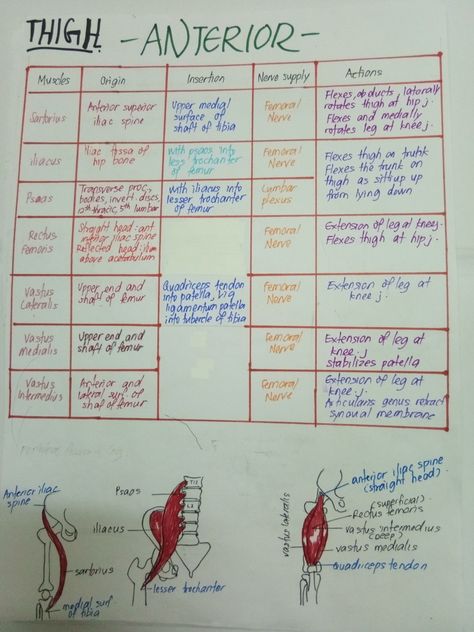 THIGH - ANTERIOR -
Muscles Origin Insertion Nerve supply Actions
Sartorius
Anterior superior
iliac spine
Upper medial
surface of
shaft of tibia
Femoral
Nerve
Flexes, abducts, laterally
rotates thigh at hip j.
Flexes and medially
rotates leg at knee j.
iliacus
iliac fossa of
hip bone
with psoas into
less trochanter
of femur
Femoral
Nerve
Flexes thigh on trunk
Flexes the trunk on
thigh as sitting up
from lying down
Psoas
Transverse proc,
bodies, invert. discs,
12th thoracic, 5th lumbar
with iliacus into
lesser trochanter
of femur
Lumbar
plexus
Rectus
Femoris
Straight head: ant.
inferior iliac spine
Reflected head: ilium
above acetabulum
Femoral
Nerve
Extension of leg at knee j.
Flexes thigh at hip j.
Vastus
Lateralis
Upper end and
shaft of femur
Quadriceps tendon
into patella, via
ligamentum patella
into tubercle of tibia
Femoral
Nerve
Extension of leg at
knee j.
Vastus
Medialis
Upper end and
shaft of femur
Femoral
Nerve
Extension of leg at
knee j
stabilizes patella
Vastus
Intermedius
Anterior and
lateral surf. of
shaf of femur
Femoral
Nerve
Extension of leg at
knee j.
Articularis genus retract
synovial membrane
Anterior iliac
spine
sartorius
medial surf.
of tibia
Psoas
T12
iliacus
lesser trochanter
anterior iliac spine
(straight head)
(superficial)
Rectus femoris
vastus lateralis
vastus intermedius
(deep)
vastus medialis
Quadriceps tendon